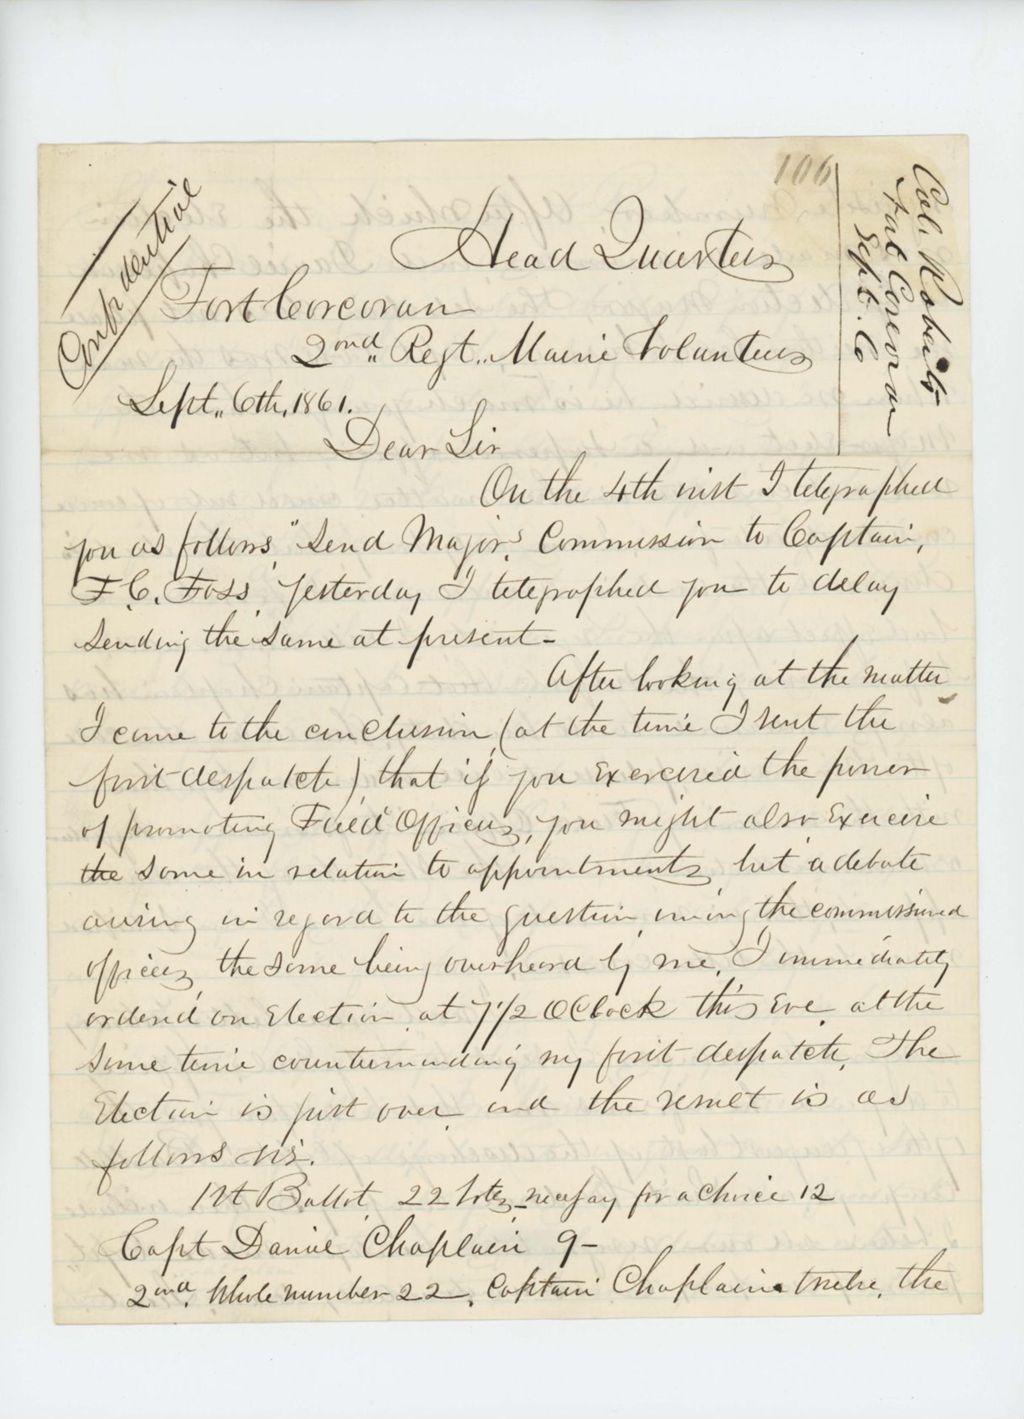 106
Confidential
Col. Roberts
Fort Corcoran
Sept. 60
Head Quarters
Fort Corcoran
2nd,, Regt,, Maine Volunteers
Sept,, 6th, 1861.
Dear Sir
On the 4th inst I telegraphed
you as follows, "Send Major's Commission to Captain,
F. C. Foss", Yesterday I telegraphed you to delay
sending the same at present -
After looking at the matter
I came to the conclusion, (at the time I sent the
first despatch) that if you exercised the power
of promoting Field Officers, you might also exercise
the same in relation to appointments, but a debate
arising in regard to the question, among the commissioned
officers, the same being overheard by me, I immediately
ordered an Election, at 7 1/2 O'Clock this Eve, at the
same time countermanding my first despatch. The
Election is just over, and the result is as
follows viz.
1st Ballot, 22 votes, necessy for a choice 12
Capt Daniel Chaplain 9 -
2nd, Whole number 22, Captain Chaplain twelve, the